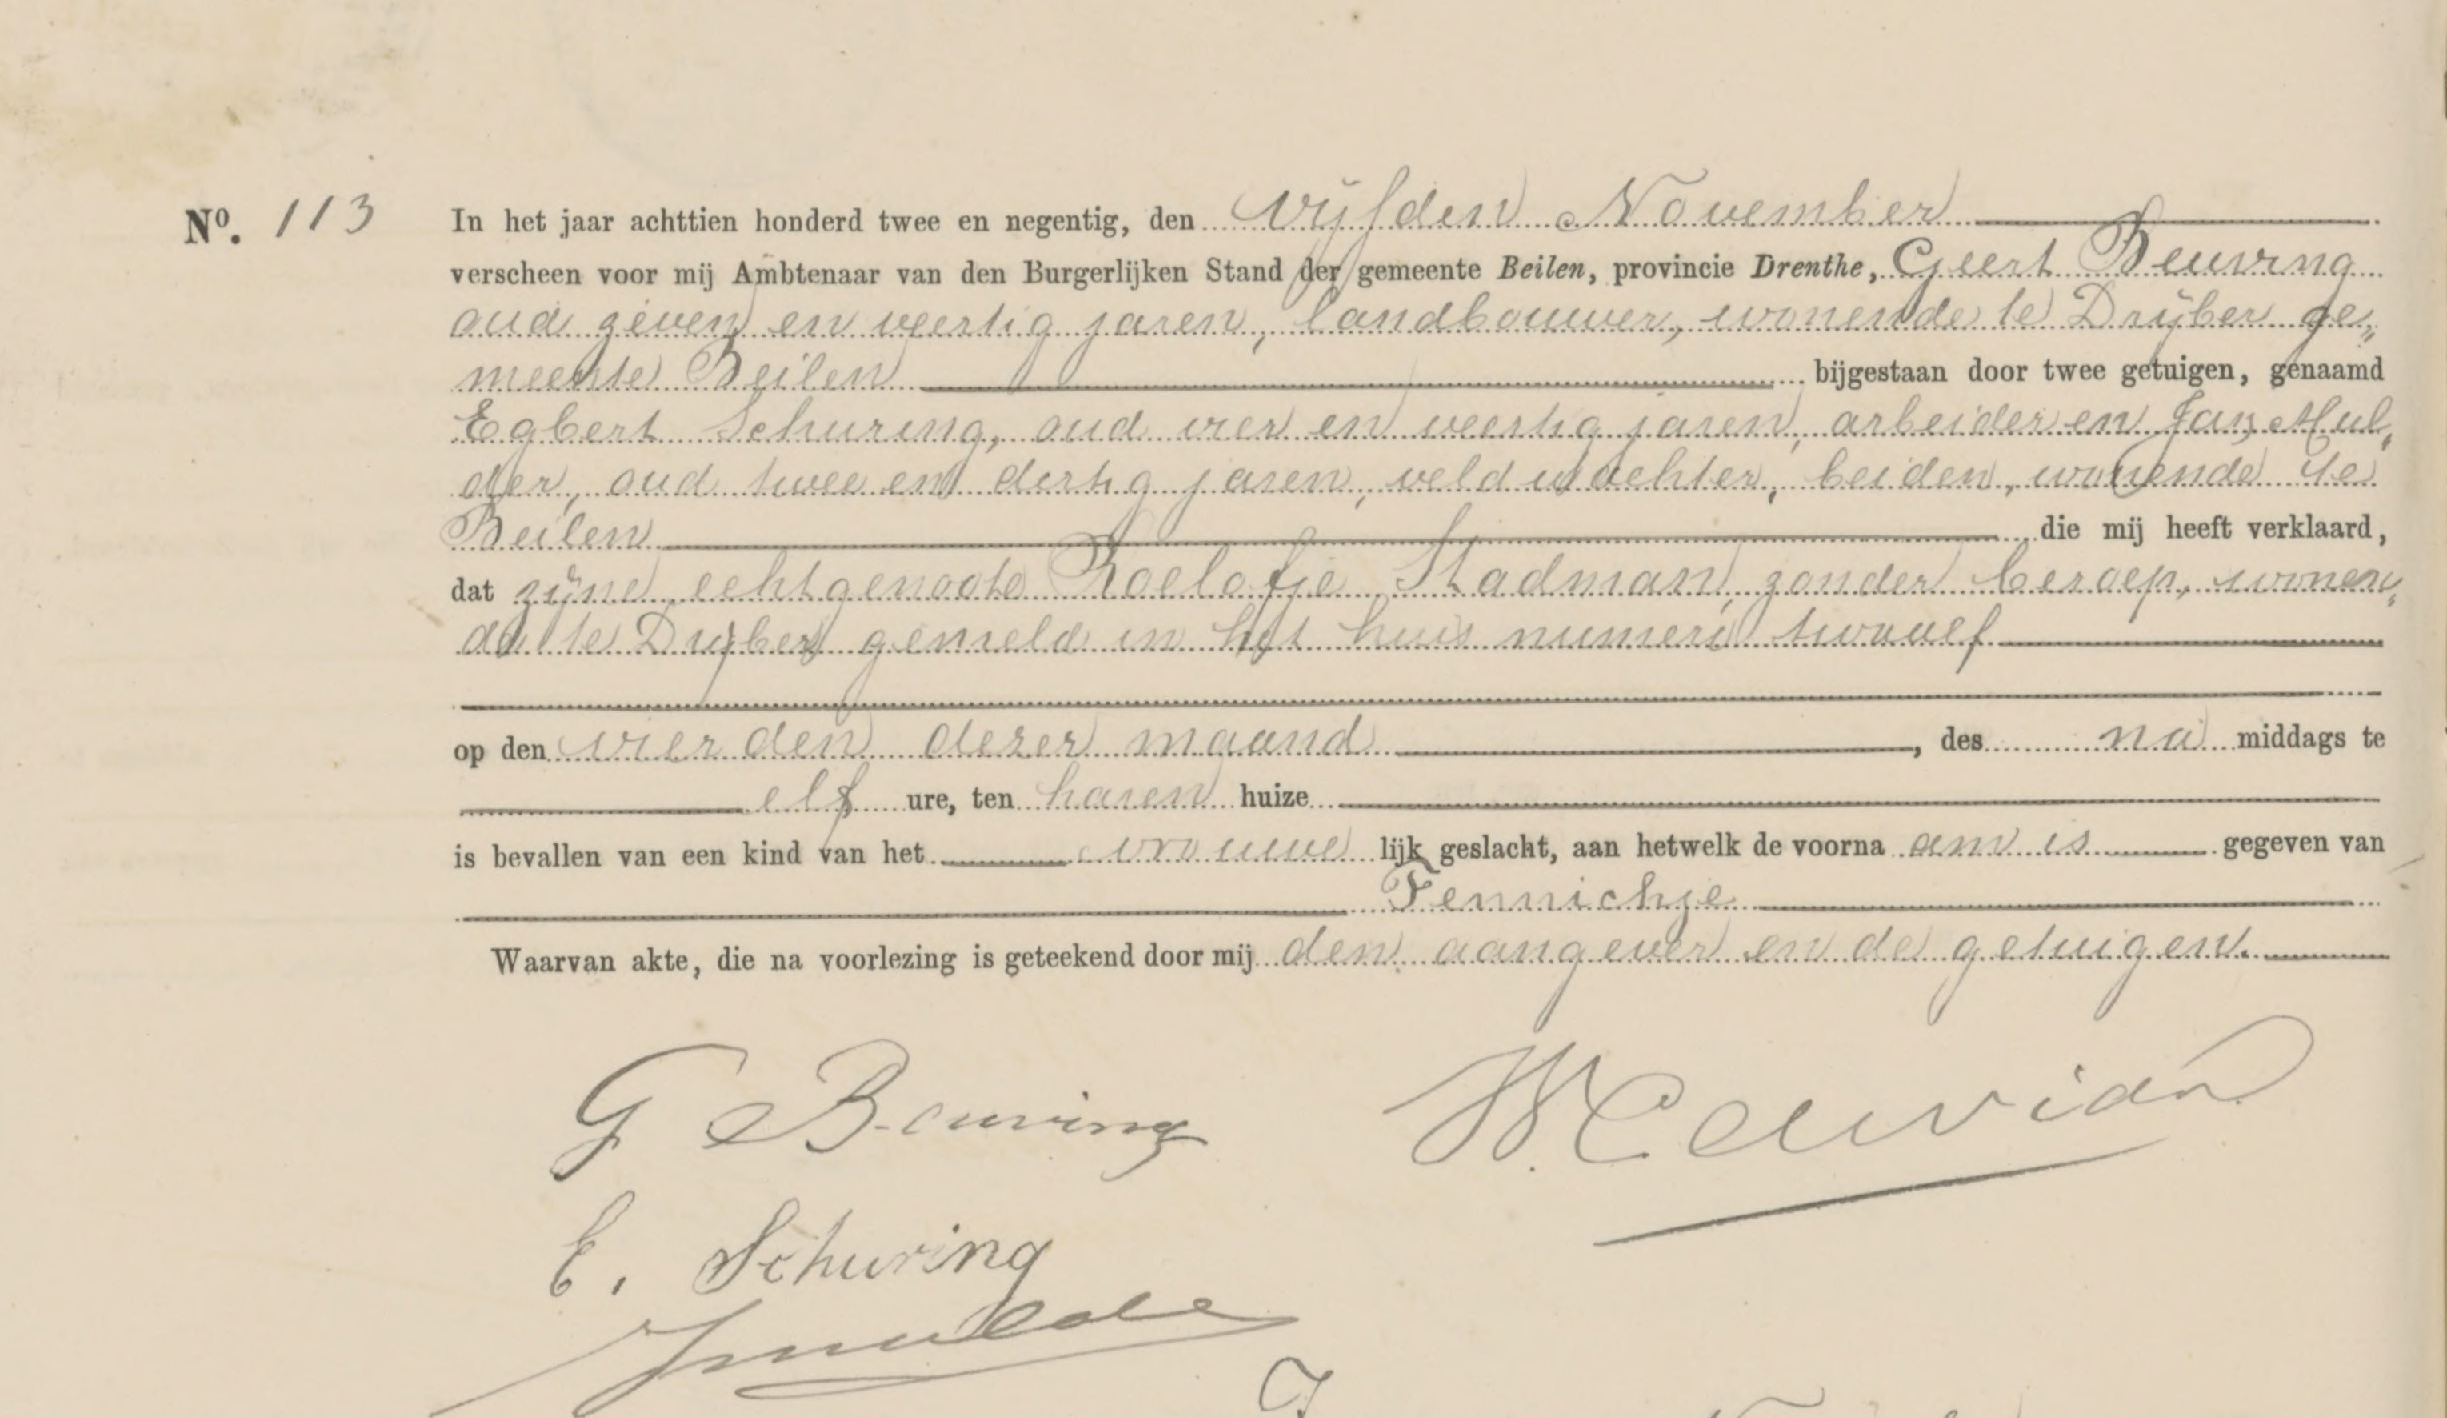 Nº. 113 In het jaar achttien honderd twee en negentig, den vijfden November
verscheen voor mij Ambtenaar van den Burgerlijken Stand der gemeente Beilen, provincie Drenthe, Geert Beuving
oud zeven en veertig jaren, landbouwer, wonende te Drijber ge„
meente Beilen bijgestaan door twee getuigen, genaamd
Egbert Schuring, oud vier en veertig jaren, arbeider en Jan Mul„
der, oud twee en dertig jaren, veldwachter, beiden, wonende te
Beilen die mij heeft verklaard,
dat zijne echtgenoote Roelofje Stadman, zonder beroep, wonen„
de te Drijber gemeld in het huis numero twaalf
op den vierden dezer maand, des na middags te
elf ure, ten haren huize
is bevallen van een kind van het vrouwe lijk geslacht, aan hetwelk de voorna am is gegeven van
Fennichje
Waarvan akte, die na voorlezing is geteekend door mij den aangever en de getuigen.
G Beuving
E. Schuring
JMulder